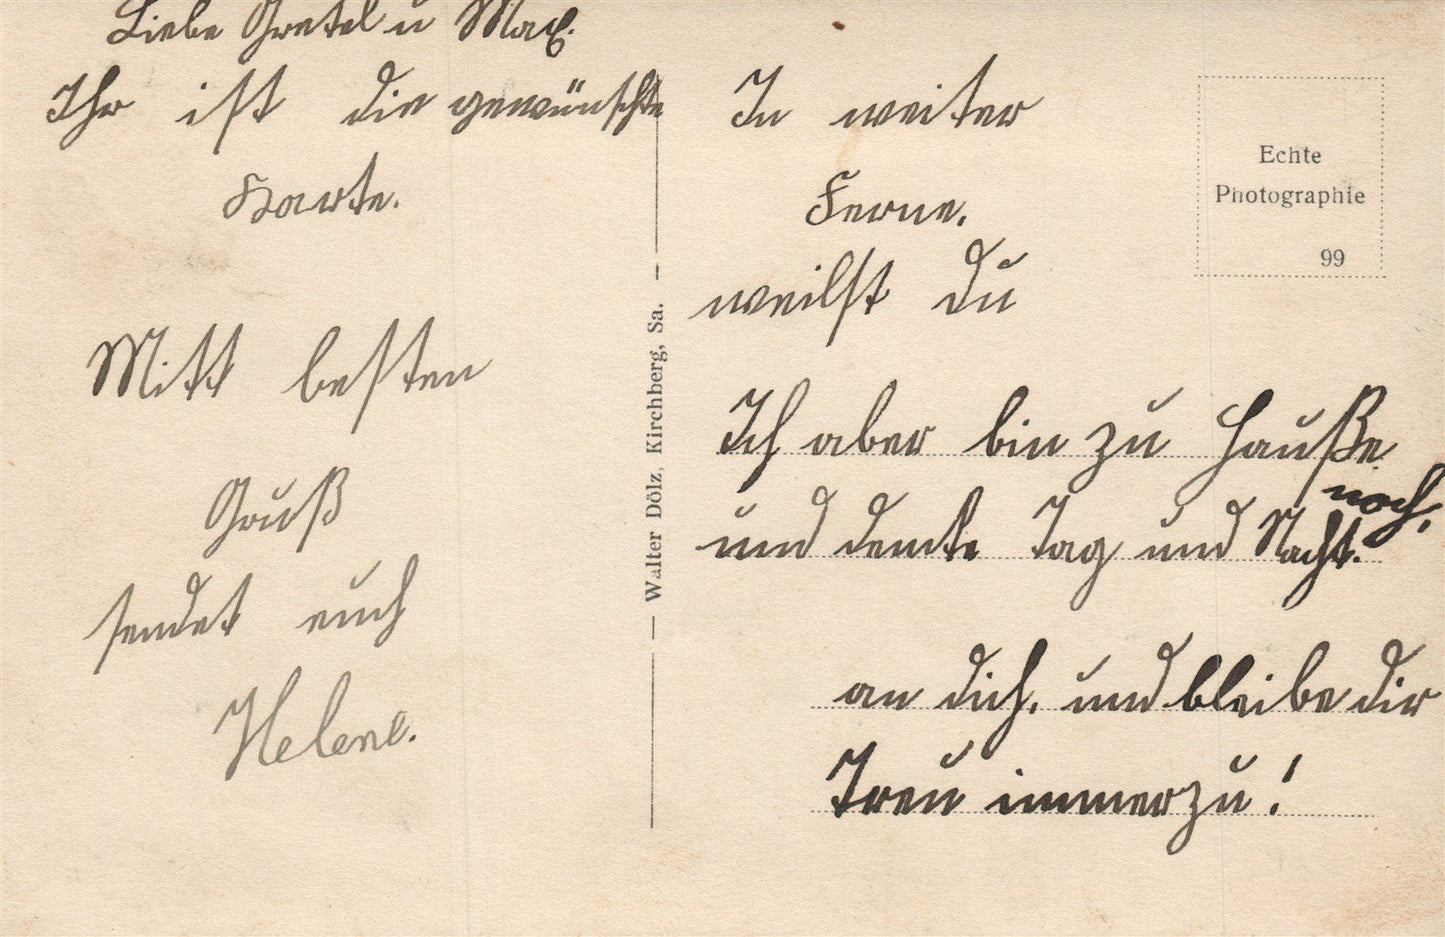 Liebe Gretel u Max.
Ihr ist die gewünschte
Karte.
Mitt besten
Gruß
sendet euch
Helene.
Walter Dölz, Kirchberg, Sa.
In weiter
Ferne.
weilst du
Ich aber bin zu Hauße
noch,
und denke Tag und Nacht.
an dich, und bleibe dir
Treu immerzu!
Echte
Photographie
99